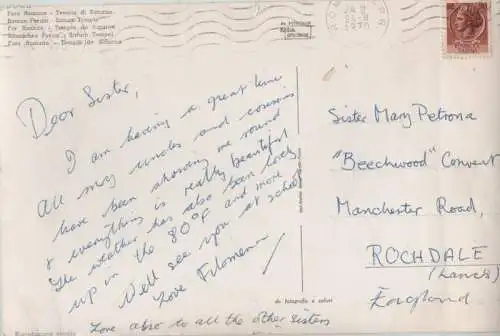 Foro Romano - Tempio di Saturno
Roman Forum - Saturn Temple
Foro Romano - Templo de Saturno
Dear Sister,
I am having a great time
All my uncles and cousins
have been showing me round
& everything is really beautiful
The weather has also been lovely
up in the 80°F and more
Well see you at school
Love Filomena
Love also to all the other sisters
Sister Mary Petrona
"Beechwood" Convent
Manchester Road,
ROCHDALE
(Lancs)
England
da fotografia a colori